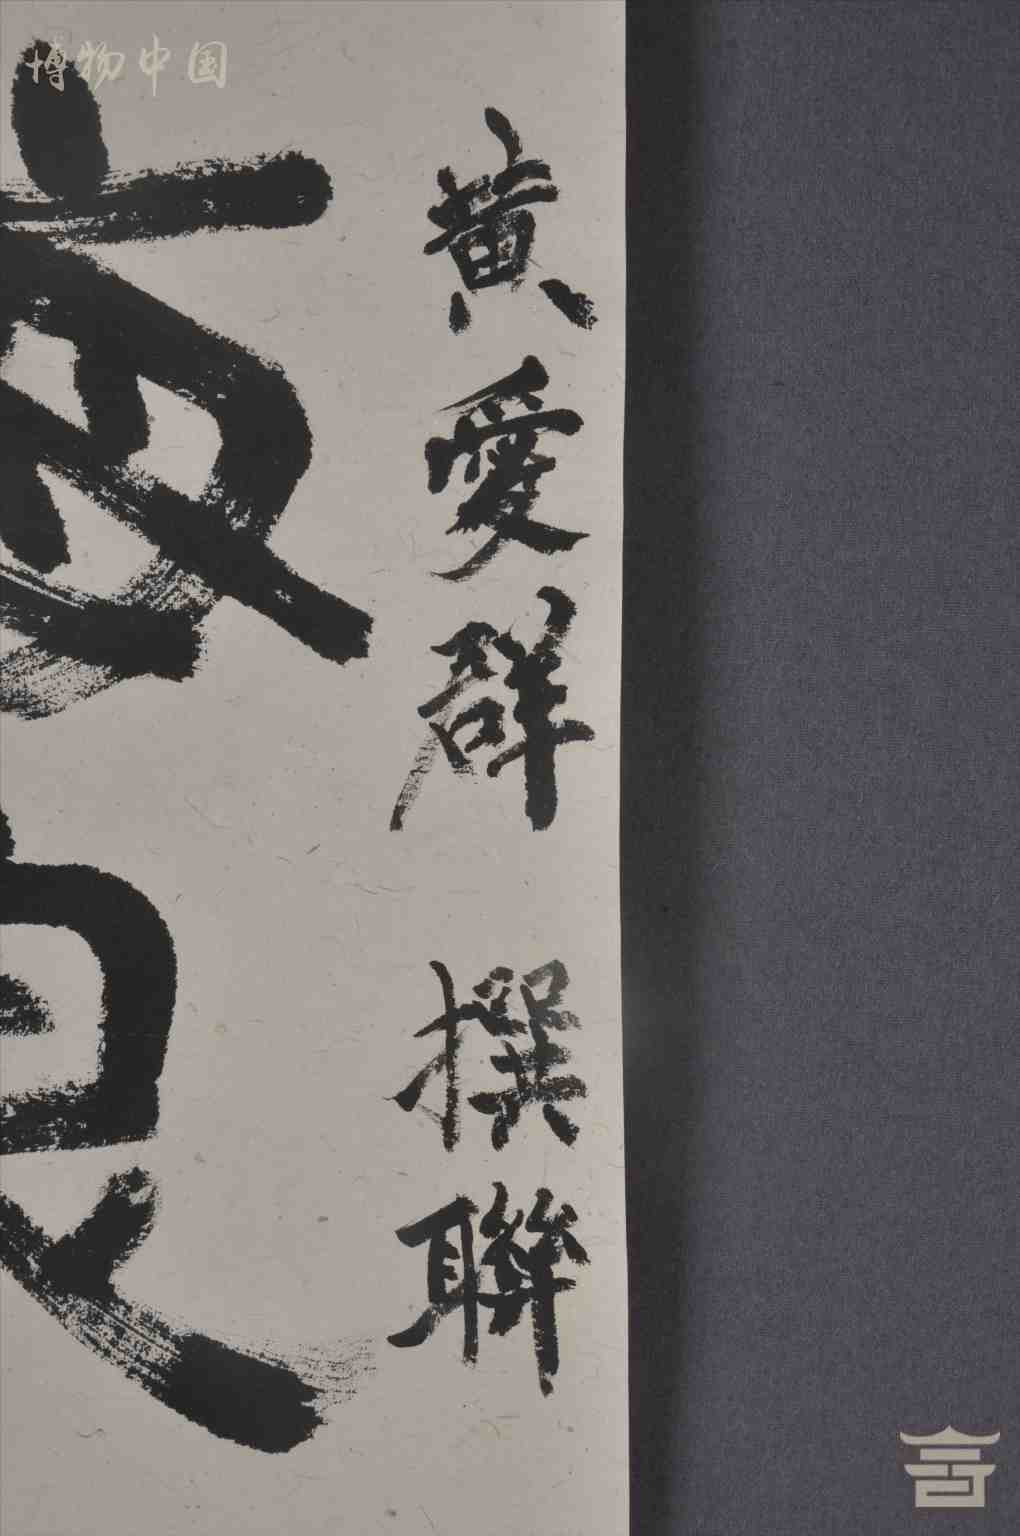 博物中国
黄愛群 撰聯